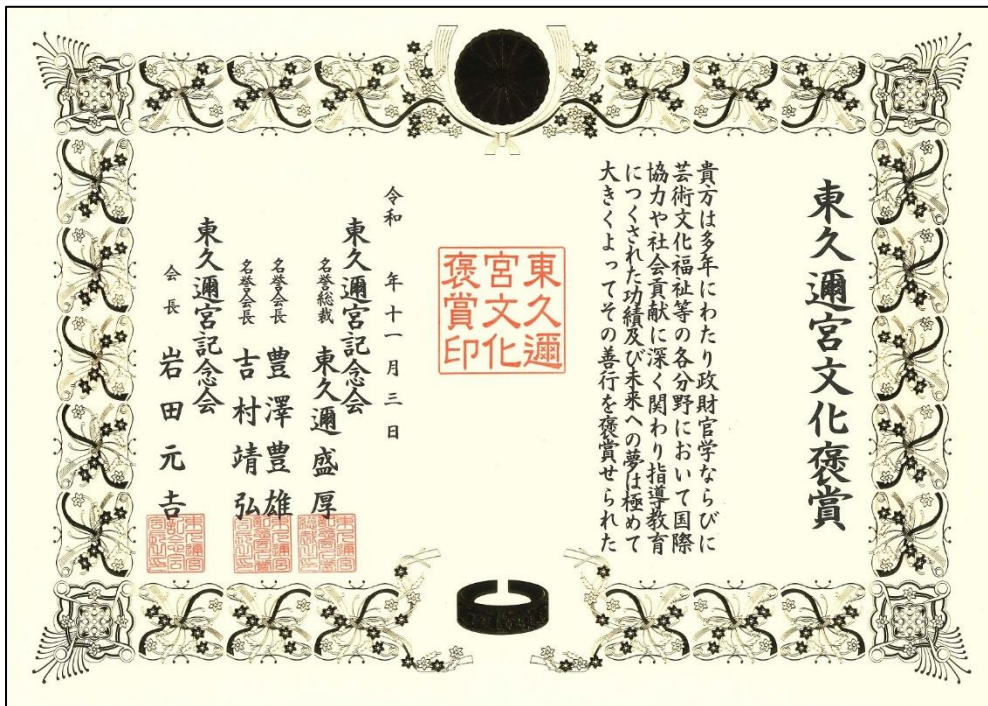 東久邇宮文化褒賞
貴方は多年にわたり政財官学ならびに
芸術文化福祉等の各分野において国際
協力や社会貢献に深く関わり指導教育
につくされた功績及び未来への夢は極めて
大きくよってその善行を褒賞せられた
東久邇
宮文化
褒賞印
令和 年十一月三日
東久邇宮記念会
名誉総裁 東久邇盛厚
名誉会長 豊澤豊雄
名誉会長 吉村靖弘
東久邇宮記念会
会長 岩田元吉